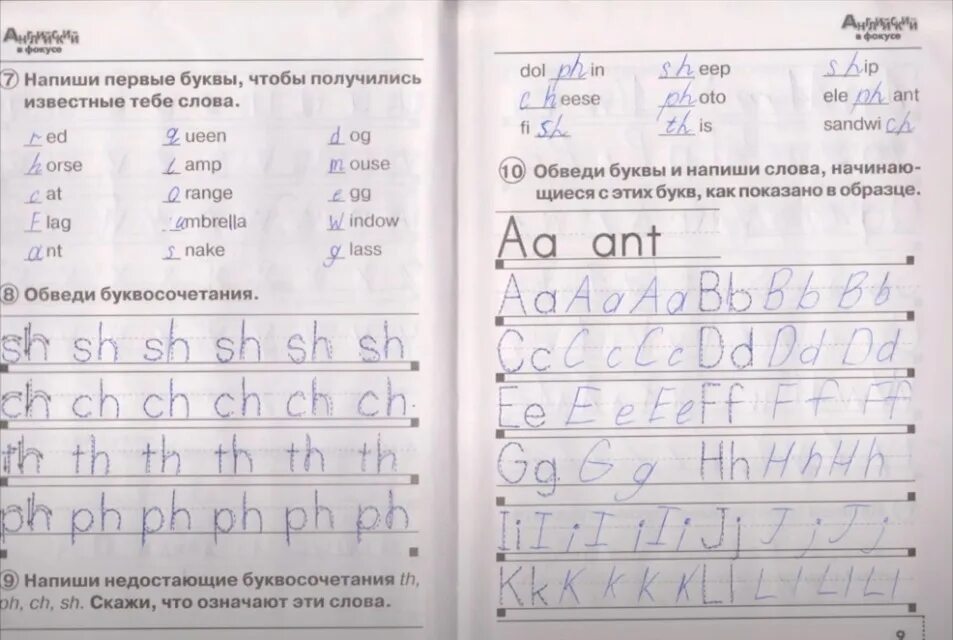 Английский
в фокусе
7 Напиши первые буквы, чтобы получились
известные тебе слова.
red queen dog
horse lamp mouse
cat orange egg
Flag umbrella Window
ant snake glass
8 Обведи буквосочетания.
sh sh sh sh sh sh
ch ch ch ch ch ch
th th th th th th
ph ph ph ph ph ph
9 Напиши недостающие буквосочетания th,
ph, ch, sh. Скажи, что означают эти слова.
Английский
в фокусе
dolphin sheep ship
cheese photo elephant
fish this sandwich
10 Обведи буквы и напиши слова, начинаю-
щиеся с этих букв, как показано в образце.
Aa ant
Aa Aa Aa Bb Bb Bb
Cc Cc Cc Dd Dd Dd
Ee Ee Ee Ff Ff Ff
Gg Gg Hh Hh Hh
Ii Ii Ii Ii Jj Jj Jj
Kk K K K K Ll L l L l
9